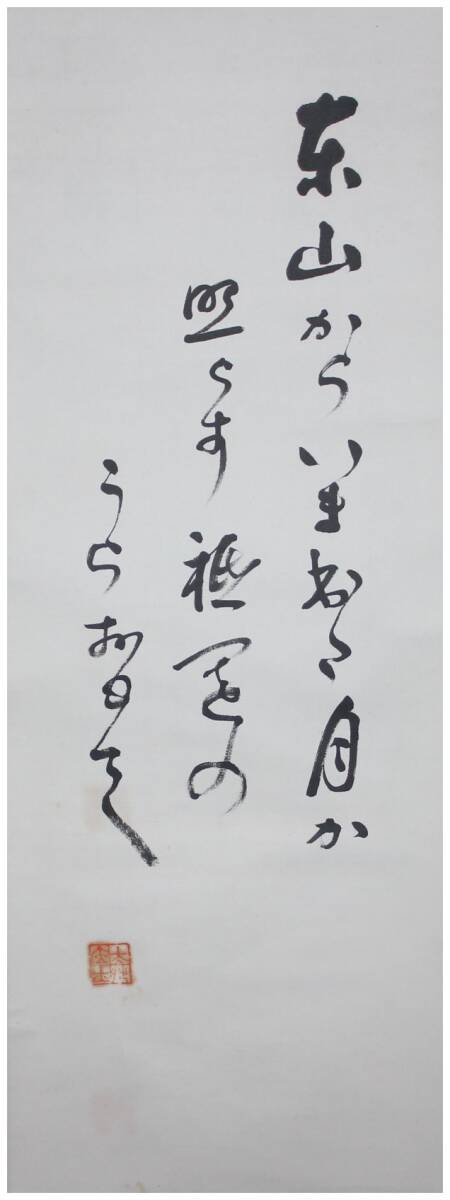 東山からいま出た月か
照らす祇園の
うらおもて